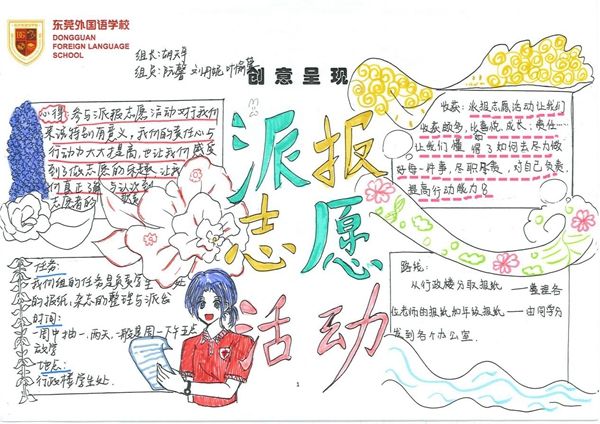 东莞外国语学校
DONGGUAN
FOREIGN LANGUAGE
SCHOOL
组长:胡天宇
组员:阮馨 刘丹妮 叶
创意呈现
派报
志愿
活动
心得:参与派报志愿活动对于我们
来说特别有意义,我们的责任心与
行动力大大提高,也让我们感受
到了做志愿的乐趣,让我
们真正了解与认识到
志愿者的
收获:派报志愿活动让我们
收获颇多,比喜悦、成长、责任……
让我们懂得了如何去尽力做
好每一件事,尽职尽责,对自己负责
提高行动能力。
任务:
我们组的任务是负责学生处
的报纸,杂志的整理与派台
时间:
一周中抽一、两天,一般是周一下午至点
放学
地点:
行政楼学生处.
路线:
从行政楼分取报纸——整理各
任老师的报纸如年级报纸——由同学分
发到各个办公室.
1